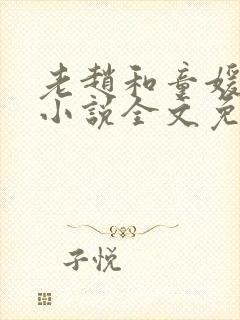 老赵和童媛
小说全文免
子悦